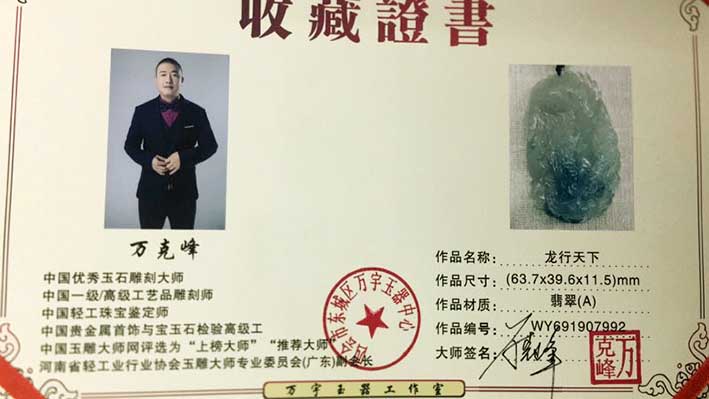 收藏證書
万克峰
中国优秀玉石雕刻大师
中国一级/高级工艺品雕刻师
中国轻工珠宝鉴定师
中国贵金属首饰与宝玉石检验高级工
中国玉雕大师网评选为“上榜大师”“推荐大师”
河南省轻工业行业协会玉雕大师专业委员会(广东)副会长
会市东城区万宇玉器中心
作品名称: 龙行天下
作品尺寸: (63.7x39.6x11.5)mm
作品材质: 翡翠(A)
作品编号: WY691907992
大师签名: 万克峰
万克峰
万宇玉器工作室